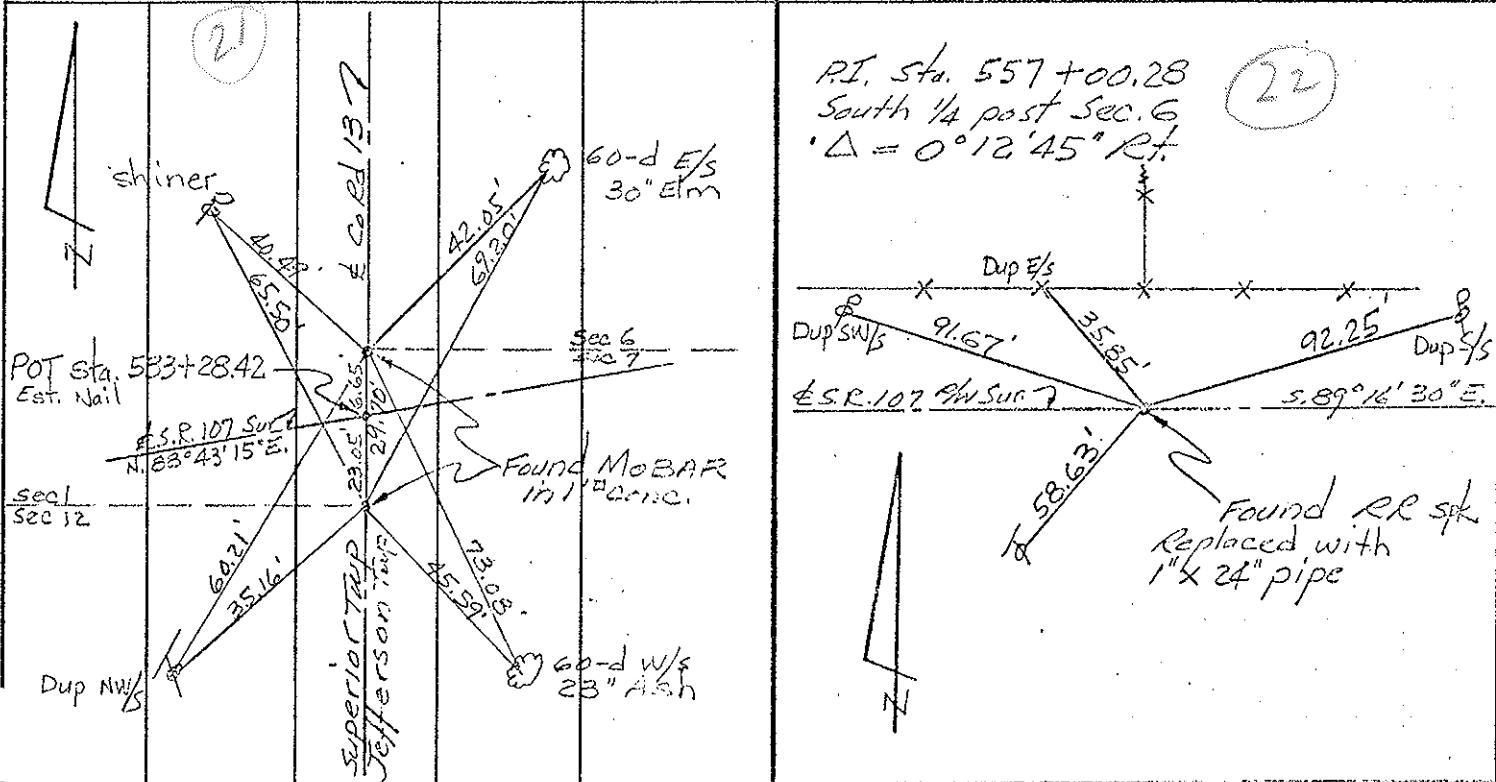 21
℄ Co Rd 13
shiner
60-d E/s
30" Elm
40.47'
65.50'
42.05'
69.20'
Z
Sec 6
Sec 7
POT sta. 533+28.42
Est. Nail
6.65'
29.70'
23.05'
℄ S.R. 107 Sur.
N. 83°43'15" E.
Found MoBAR
in 1"□ conc.
Sec 1
Sec 12
60.21'
35.16'
73.08'
45.59'
Superior Twp
Jefferson Twp
Dup NW/s
60-d W/s
23" Ash
22
P.I. Sta. 557+00.28
South 1/4 post Sec. 6
Δ = 0°12'45" Rt.
Dup E/s
Dup SW/s
91.67'
35.85'
92.25'
Dup S/s
℄ S.R. 107 R/W Sur.
S. 89°16'30" E.
58.63'
Found RR spk
Replaced with
1" x 24" pipe
Z